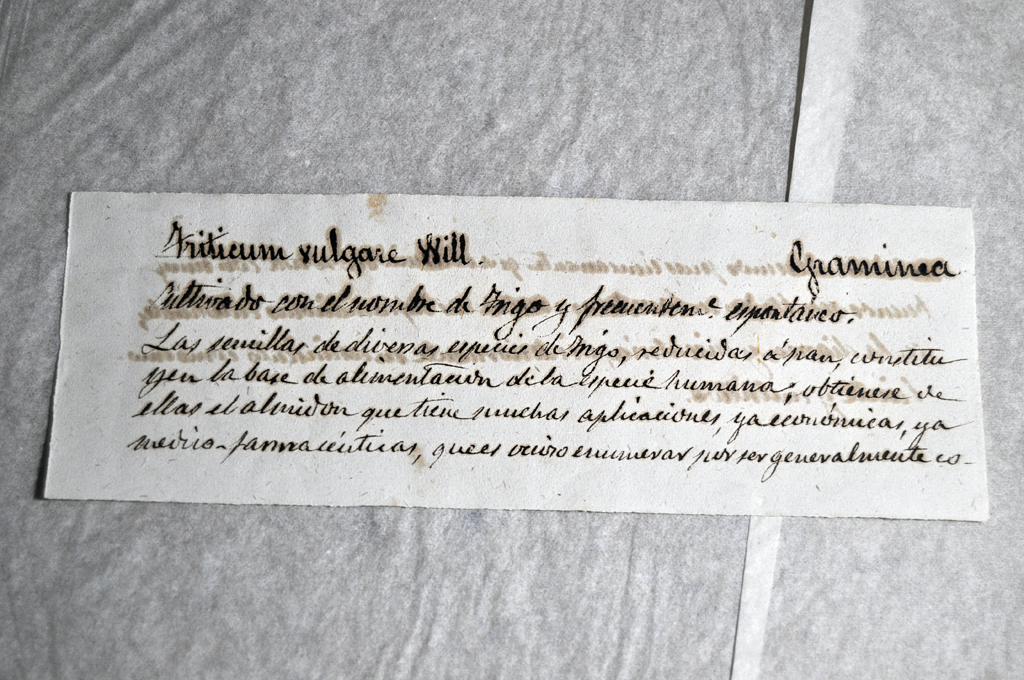 Triticum vulgare Will. Graminea
Cultivado con el nombre de Trigo y frecuentem.e espontáneo.
Las semillas de diversas especies de Trigo, reducidas á pan, constitu
yen la base de alimentacion de la especie humana; obtienese de
ellas el almidon que tiene muchas aplicaciones, ya económicas, ya
medico-farmacéuticas, que es ocioso enumerar por ser generalmente co-